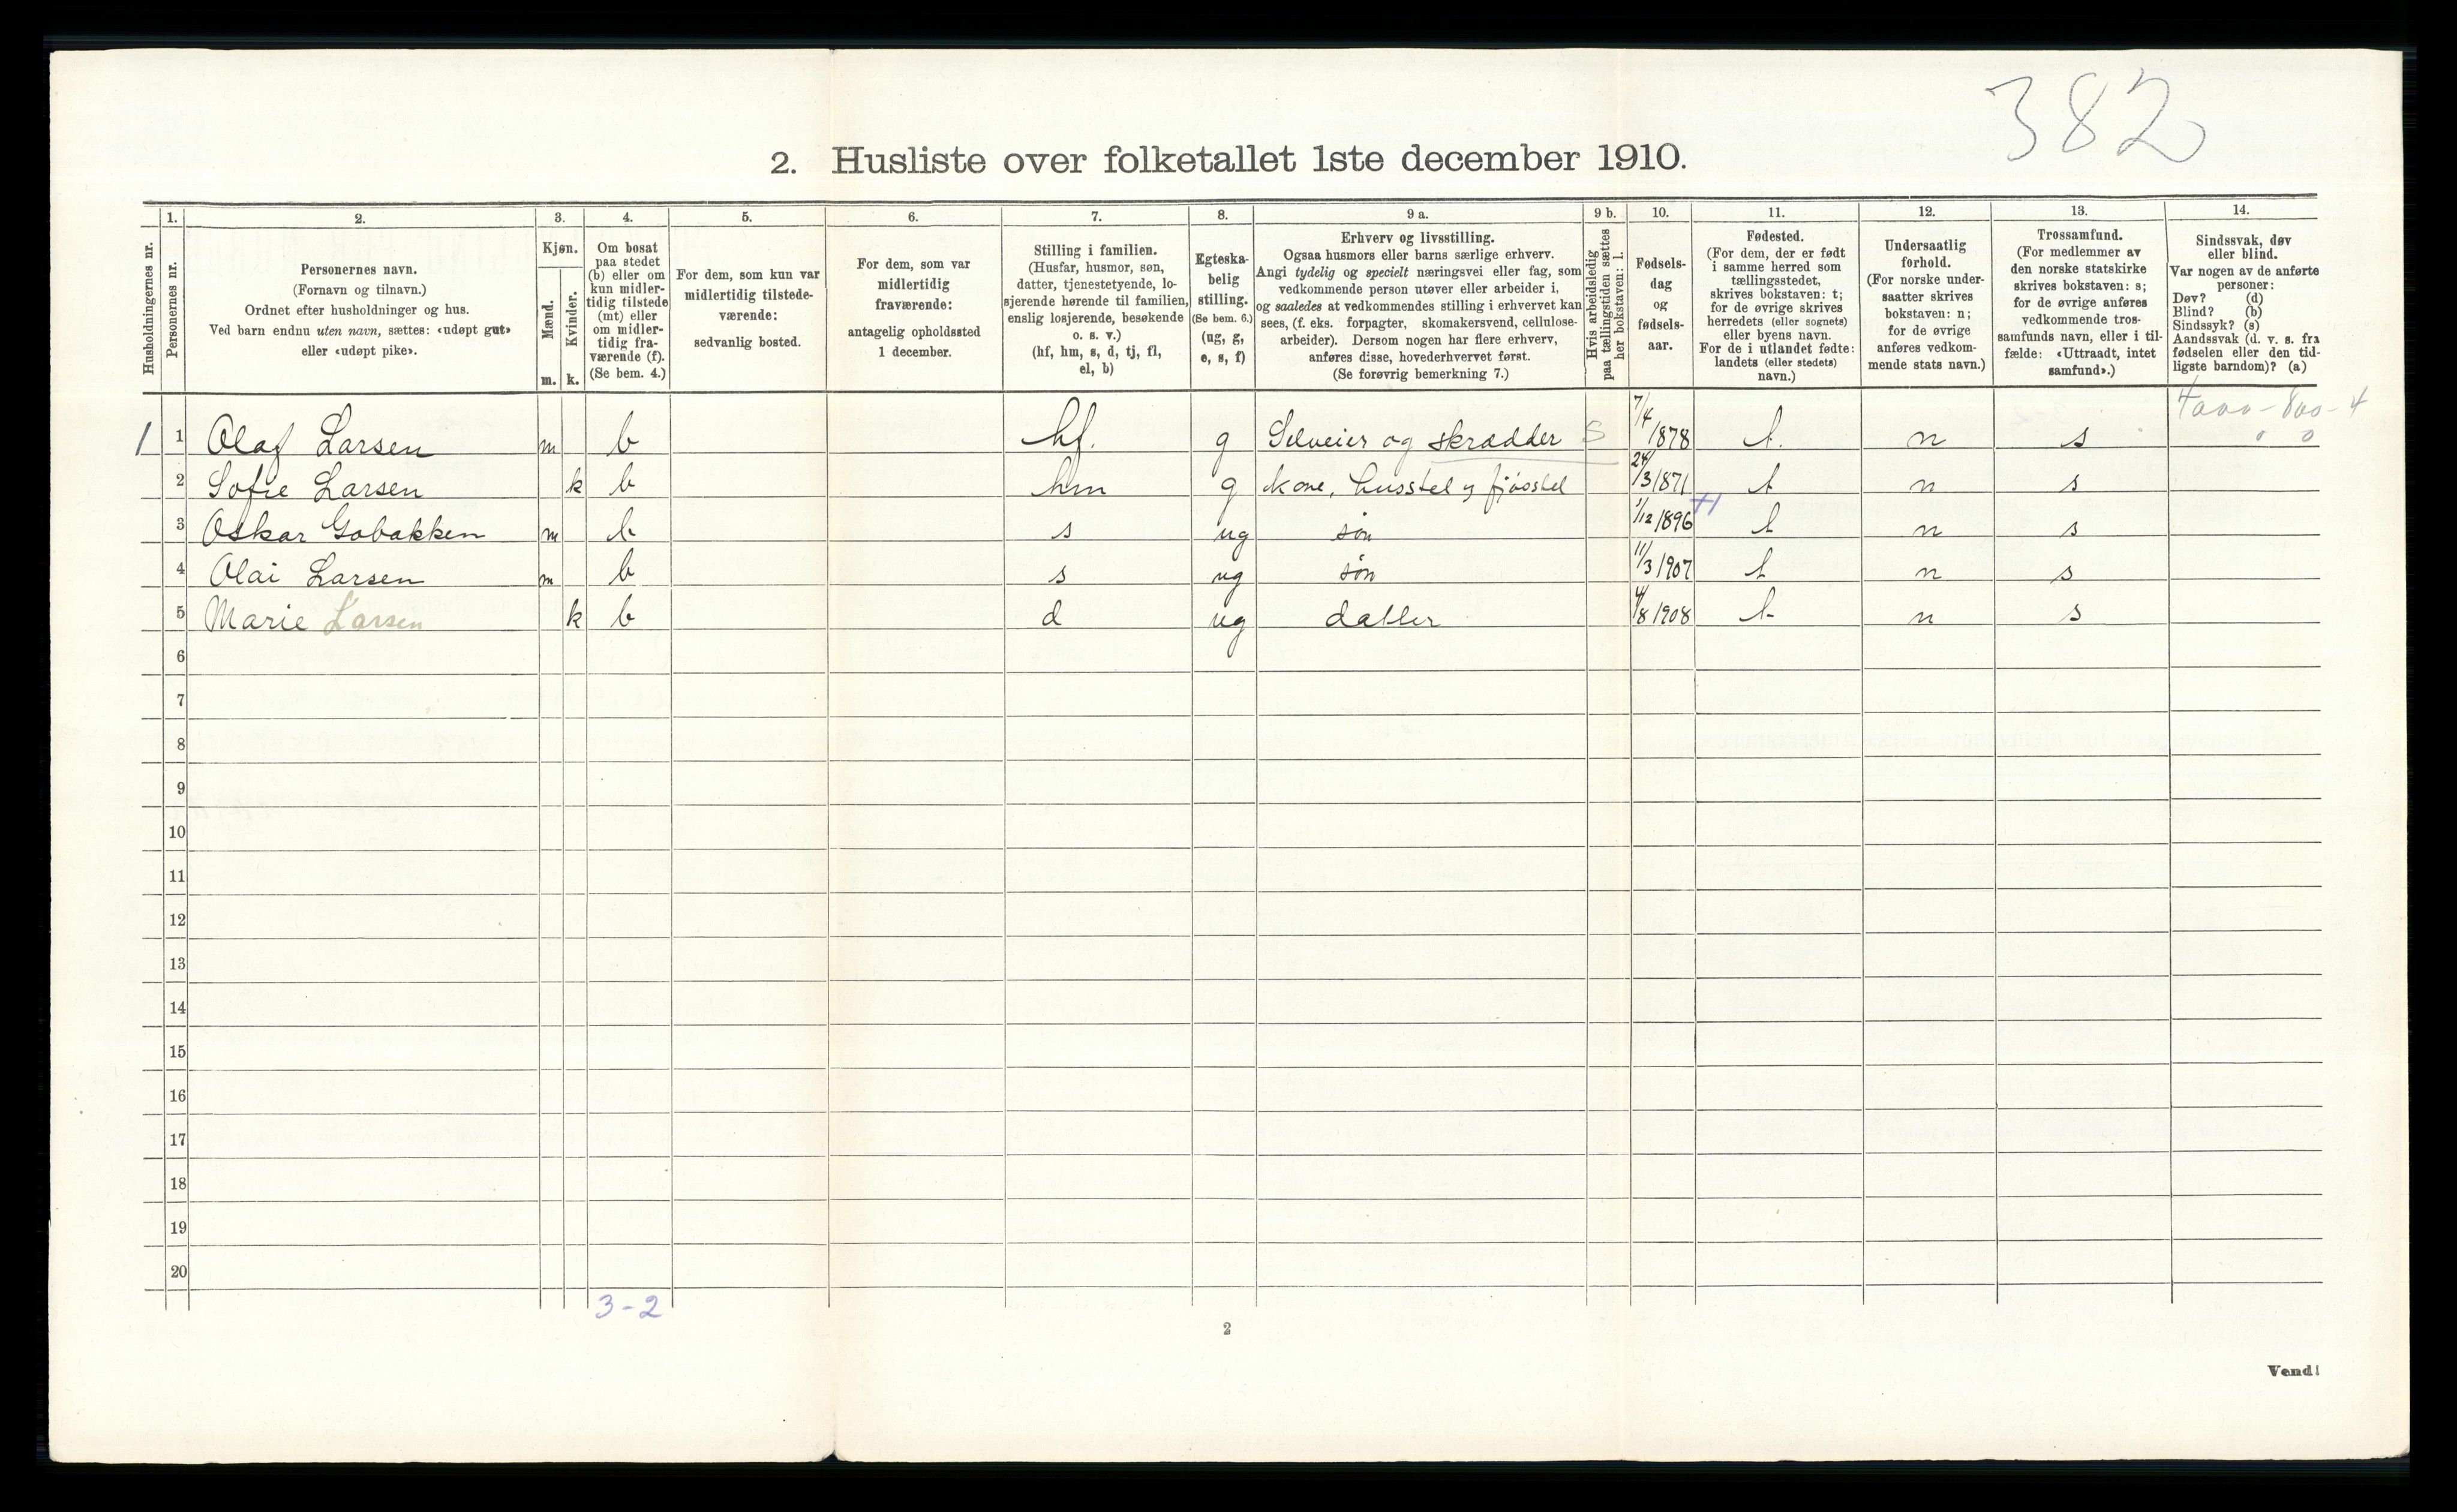 382
2. Husliste over folketallet 1ste december 1910.
Husholdningernes nr.
1.
Personernes nr.
2.
Personernes navn.
(Fornavn og tilnavn.)
Ordnet efter husholdninger og hus.
Ved barn endnu uten navn, sættes: «udøpt gut»
eller «udøpt pike».
3.
Kjøn.
Mænd.
Kvinder.
m. k.
4.
Om bosat
paa stedet
(b) eller om
kun midler-
tidig tilstede
(mt) eller
om midler-
tidig fra-
værende (f).
(Se bem. 4.)
5.
For dem, som kun var
midlertidig tilstede-
værende:
sedvanlig bosted.
6.
For dem, som var
midlertidig
fraværende:
antagelig opholdssted
1 december.
7.
Stilling i familien.
(Husfar, husmor, søn,
datter, tjenestetyende, lo-
sjerende hørende til familien,
enslig losjerende, besøkende
o. s. v.)
(hf, hm, s, d, tj, fl,
el, b)
8.
Egteska-
belig
stilling.
(Se bem. 6.)
(ug, g,
e, s, f)
9 a.
Erhverv og livsstilling.
Ogsaa husmors eller barns særlige erhverv.
Angi tydelig og specielt næringsvei eller fag, som
vedkommende person utøver eller arbeider i,
og saaledes at vedkommendes stilling i erhvervet kan
sees, (f. eks. forpagter, skomakersvend, cellulose-
arbeider). Dersom nogen har flere erhverv,
anføres disse, hovederhvervet først.
(Se forøvrig bemerkning 7.)
9 b.
Hvis arbeidsledig
paa tællingstiden sættes
her bokstaven: l.
10.
Fødsels-
dag
og
fødsels-
aar.
11.
Fødested.
(For dem, der er født
i samme herred som
tællingsstedet,
skrives bokstaven: t;
for de øvrige skrives
herredets (eller sognets)
eller byens navn.
For de i utlandet fødte:
landets (eller stedets)
navn.)
12.
Undersaatlig
forhold.
(For norske under-
saatter skrives
bokstaven: n;
for de øvrige
anføres vedkom-
mende stats navn.)
13.
Trossamfund.
(For medlemmer av
den norske statskirke
skrives bokstaven: s;
for de øvrige anføres
vedkommende tros-
samfunds navn, eller i til-
fælde: «Uttraadt, intet
samfund».)
14.
Sindssvak, døv
eller blind.
Var nogen av de anførte
personer:
Døv? (d)
Blind? (b)
Sindssyk? (s)
Aandssvak (d. v. s. fra
fødselen eller den tid-
ligste barndom)? (a)
4000 - 800 - 4
1 1 Olaf Larsen m b hf. g Selveier og skrædder S 7/4 1878 t. n s 0 0
2 Sofie Larsen k b hm g kone, husstel og fjøsstel 24/3 1871 t n s
3 Oskar Gobakken m b s ug søn 1/12 1896 t n s
4 Olai Larsen m b s ug søn 11/3 1907 t n s
5 Marie Larsen k b d ug datter 4/8 1908 t n s
6
7
8
9
10
11
12
13
14
15
16
17
18
19
20
3 - 2
2
Vend!